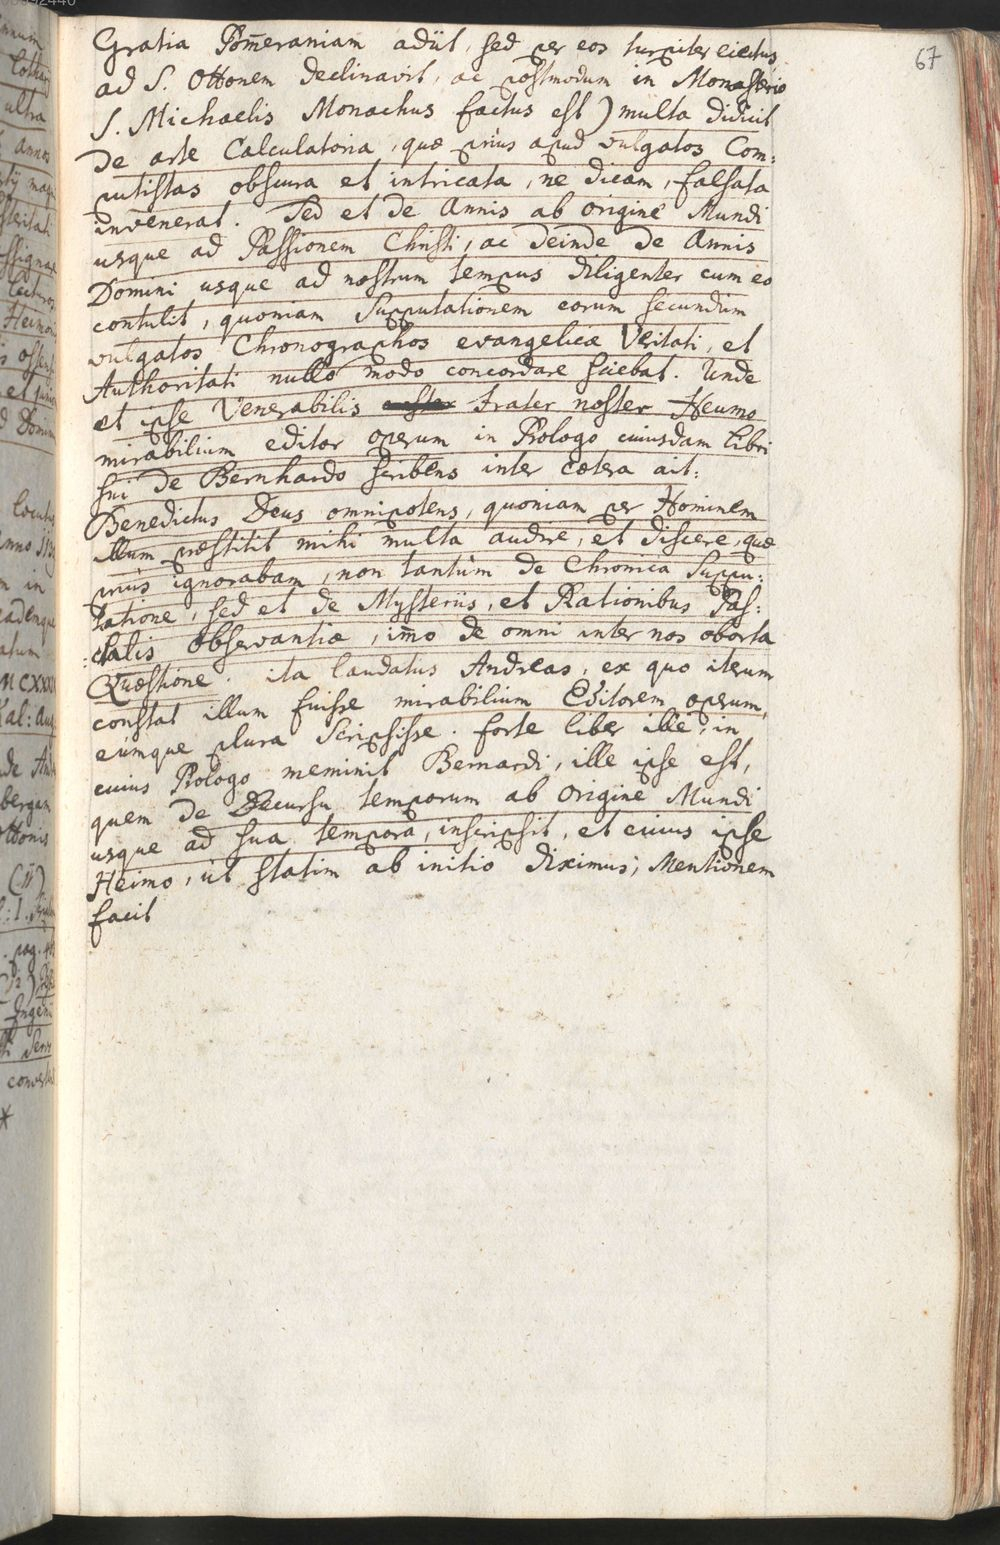 67
Gratia Pom̄eraniam adiit, sed per eos turpiter eiectus
ad S. Ottonem declinavit, ac postmodum in Monasterio
S. Michaelis Monachus factus est) multa didicit
de arte Calculatoria, quæ prius apud vulgatos Com:
putistas obscura et intricata, ne dicam, falsata
invenerat. Sed et de Annis ab origine Mundi
usque ad Passionem Christi, ac deinde de Annis
Domini usque ad nostrum tempus diligenter cum eo
contulit, quoniam supputationem eorum secundum
vulgatos Chronographos evangelicæ Veritati, et
Authoritati nullo modo concordare sciebat. Unde
et ipse Venerabilis frater noster Heumo
mirabilium editor operum in Prologo cuiusdam libri
sui de Bernhardo scribens inter cætera ait:
Benedictus Deus omnipotens, quoniam per Hominem
illum præstitit mihi multa audire, et discere, quæ
prius ignorabam, non tantùm de Chronica Suppu:
tatione, sed et de Mysteriis, et Rationibus Pas:
:chalis observantiæ, im̄o de omni inter nos oborta
Quæstione. ita laudatus Andreas, ex quo iterum
constat illum fuisse mirabilium Editorem operum,
eumque plura Scripsisse. forte liber ille, in
cuius Prologo meminit Bernardi, ille ipse est,
quem de Decursu temporum ab origine Mundi
usque ad sua tempora, inscripsit, et cuius ipse
Heimo, ut statim ab initio diximus, Mentionem
facit